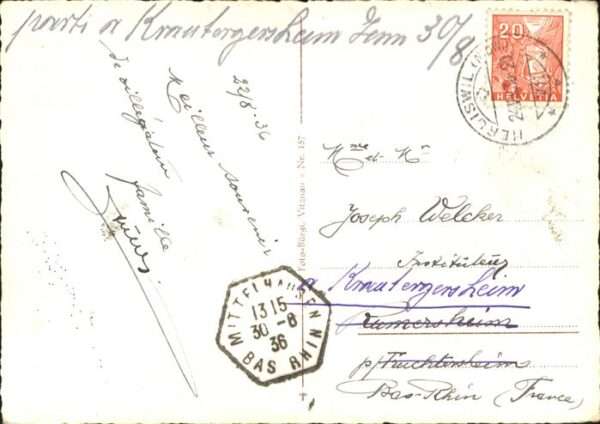 parti a Krautergersheim Jenn 30/8
20
HELVETIA
HERGISWIL
22/8.36
Meilleur souvenir
de villégiature
famille
Foto-Bürgi, Vitznau • Nr. 157
Mme et Mr
Joseph Welcker
Instituteur
a Krautergersheim
Rumersheim
p/Truchtersheim
Bas-Rhin (France)
MITTELHAUSEN
13 15
30 -8
36
BAS RHIN
T